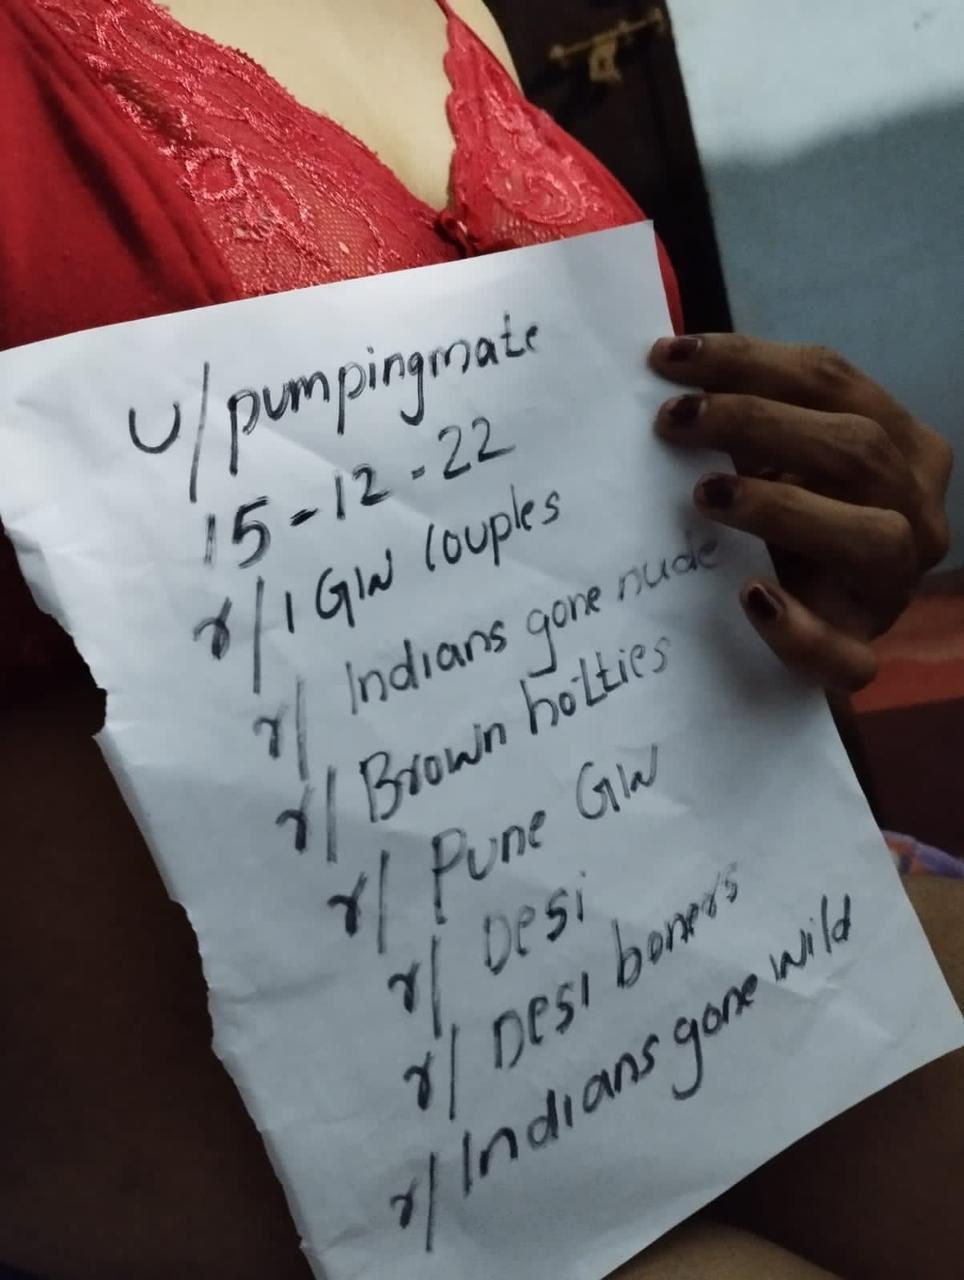 u/pumpingmate
15-12-22
r/IGW couples
r/ Indians gone nude
r/ Brown hotties
r/ Pune GW
r/ Desi
r/ Desi boners
r/ Indians gone wild